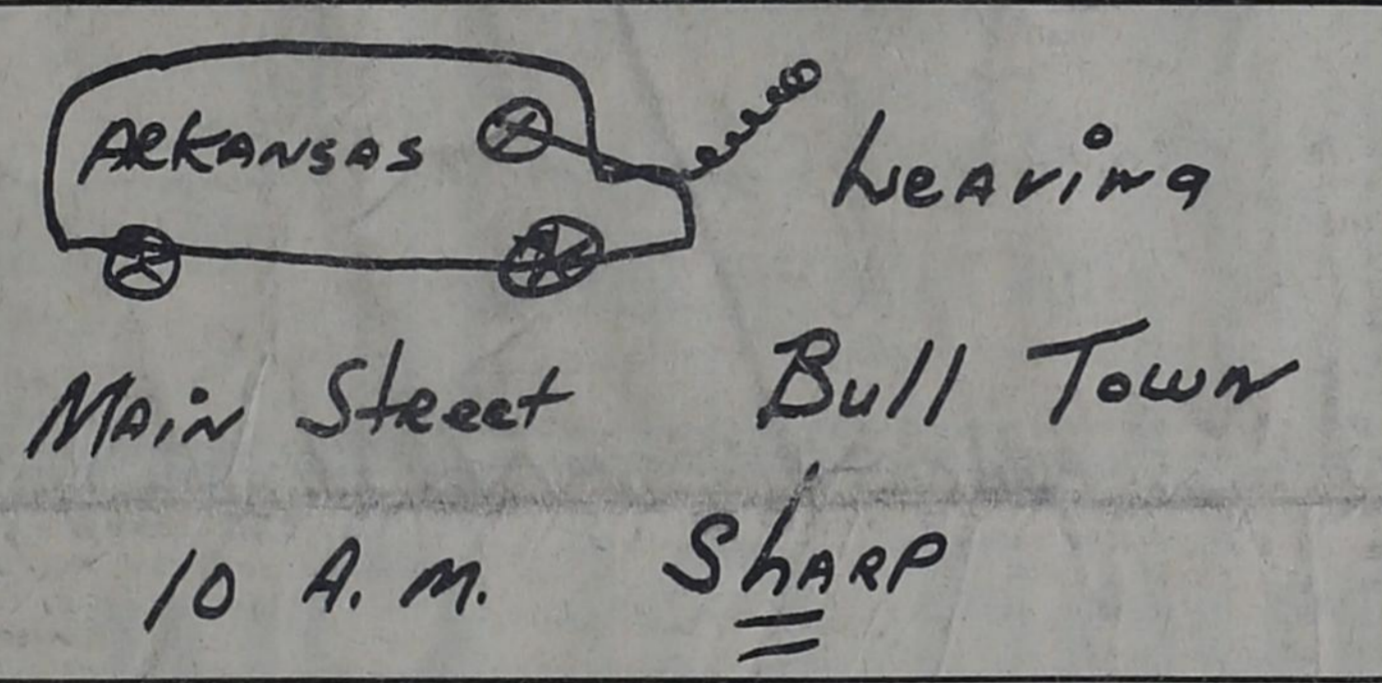 ARKANSAS Leaving
Main Street Bull Town
10 A.M. Sharp